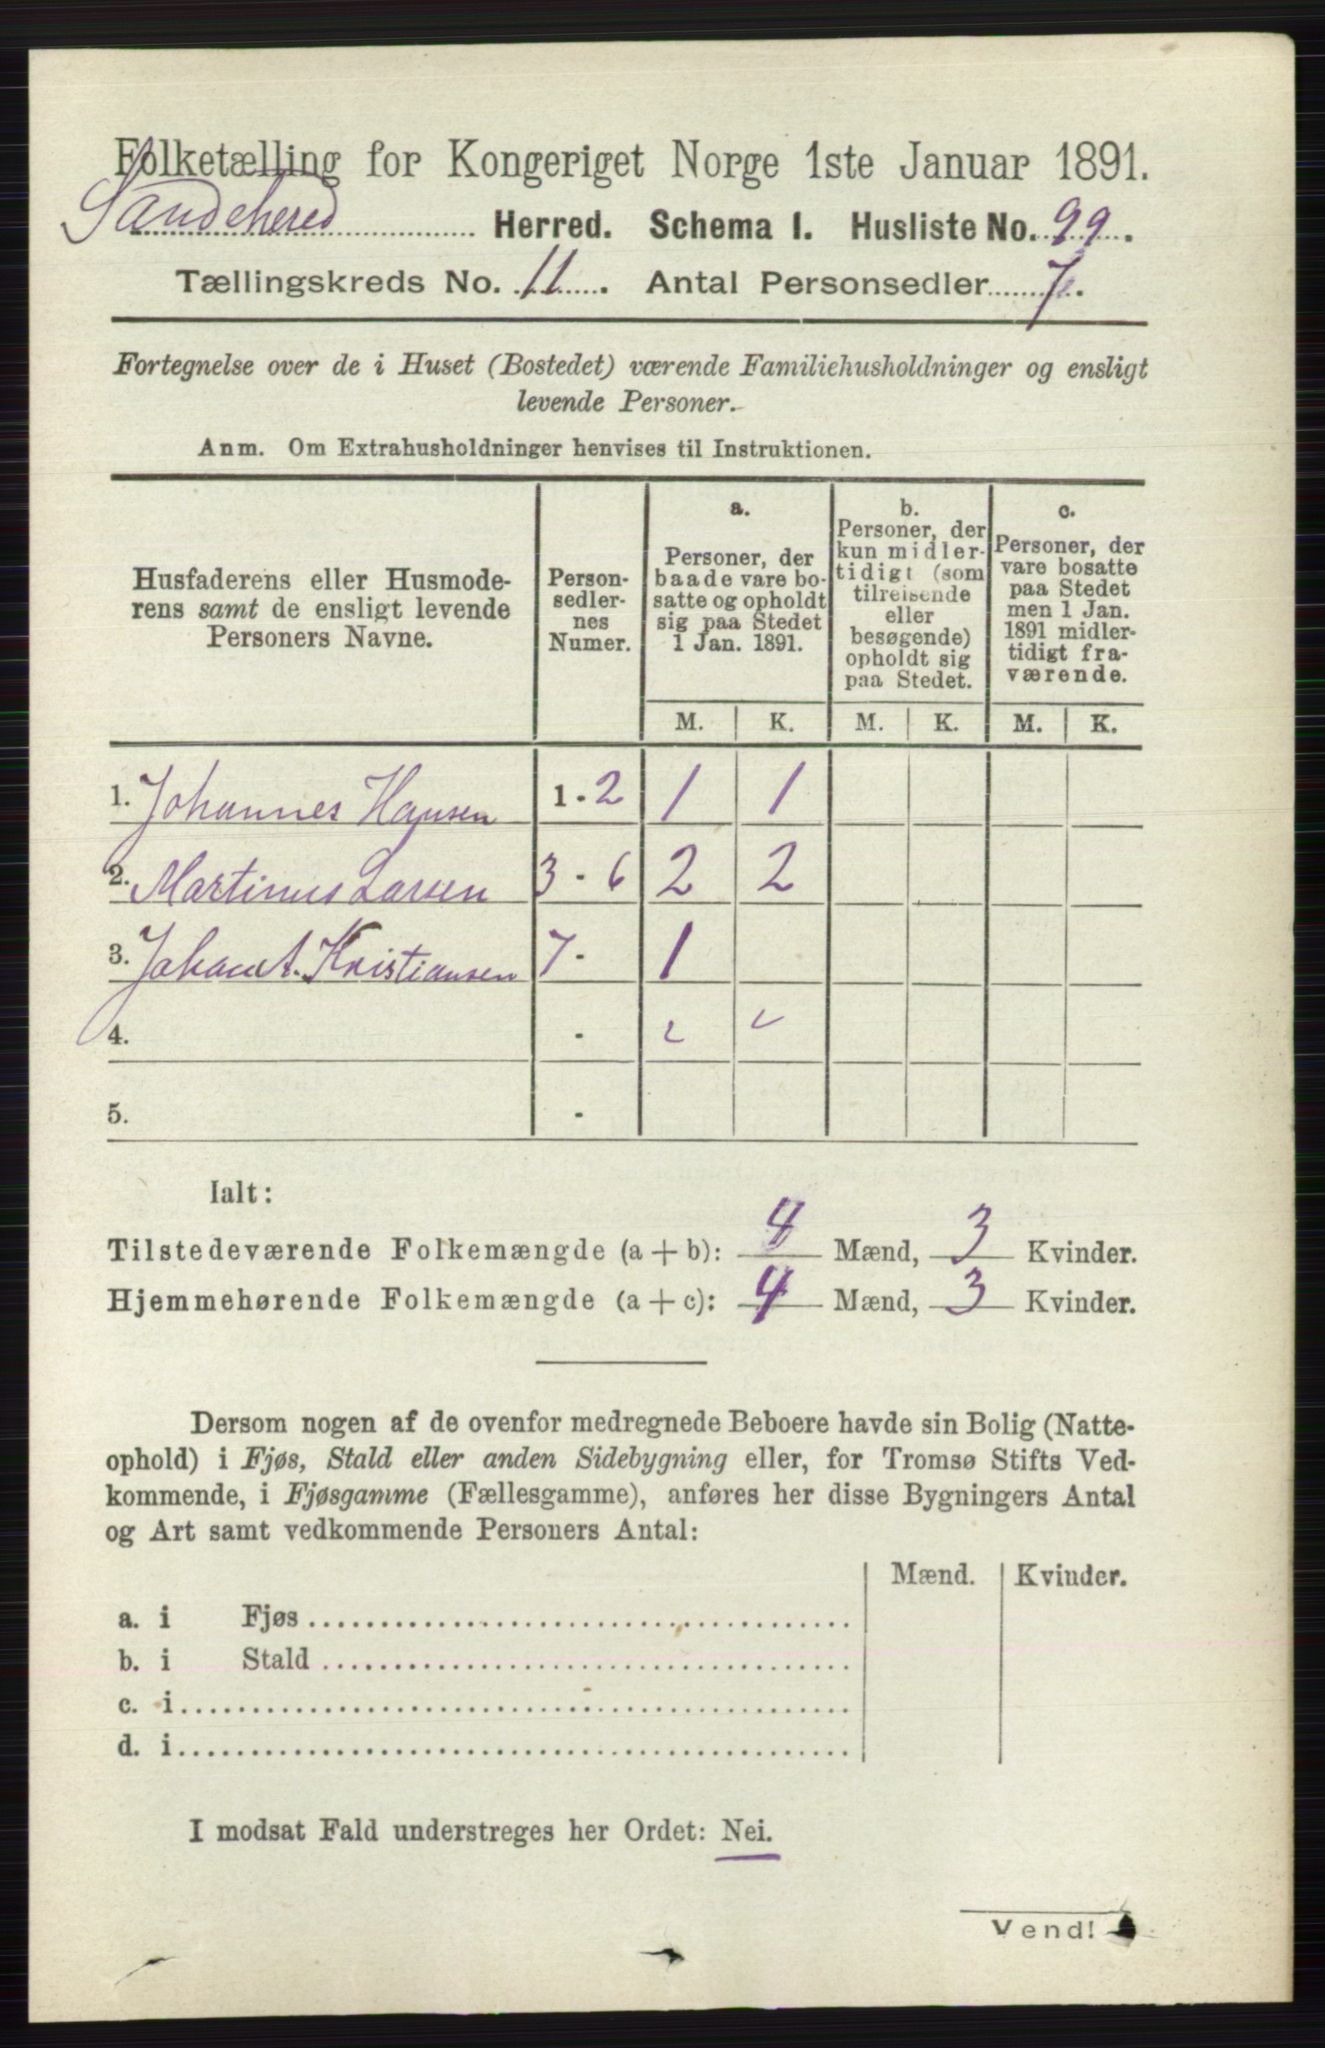 Folketælling for Kongeriget Norge 1ste Januar 1891.
Sandeherred Herred. Schema I. Husliste No. 99.
Tællingskreds No. 11. Antal Personsedler 7.
Fortegnelse over de i Huset (Bostedet) værende Familiehusholdninger og ensligt
levende Personer.
Anm. Om Extrahusholdninger henvises til Instruktionen.
Husfaderens eller Husmode-
rens samt de ensligt levende
Personers Navne.
Person-
sedler-
nes
Numer.
a.
Personer, der
baade vare bo-
satte og opholdt
sig paa Stedet
1 Jan. 1891.
b.
Personer, der
kun midler-
tidigt (som
tilreisende
eller
besøgende)
opholdt sig
paa Stedet.
c.
Personer, der
vare bosatte
paa Stedet
men 1 Jan.
1891 midler-
tidigt fra-
værende.
M. K. M. K. M. K.
1. Johannes Hansen 1 - 2 1 1
2. Martinus Larsen 3 - 6 2 2
3. Johan A. Kristiansen 7 - 1
4. -
5. -
Ialt:
Tilstedeværende Folkemængde (a + b): 4 Mænd, 3 Kvinder.
Hjemmehørende Folkemængde (a + c): 4 Mænd, 3 Kvinder.
Dersom nogen af de ovenfor medregnede Beboere havde sin Bolig (Natte-
ophold) i Fjøs, Stald eller anden Sidebygning eller, for Tromsø Stifts Ved-
kommende, i Fjøsgamme (Fællesgamme), anføres her disse Bygningers Antal
og Art samt vedkommende Personers Antal:
Mænd. Kvinder.
a. i Fjøs
b. i Stald
c. i
d. i
I modsat Fald understreges her Ordet: Nei.
Vend!